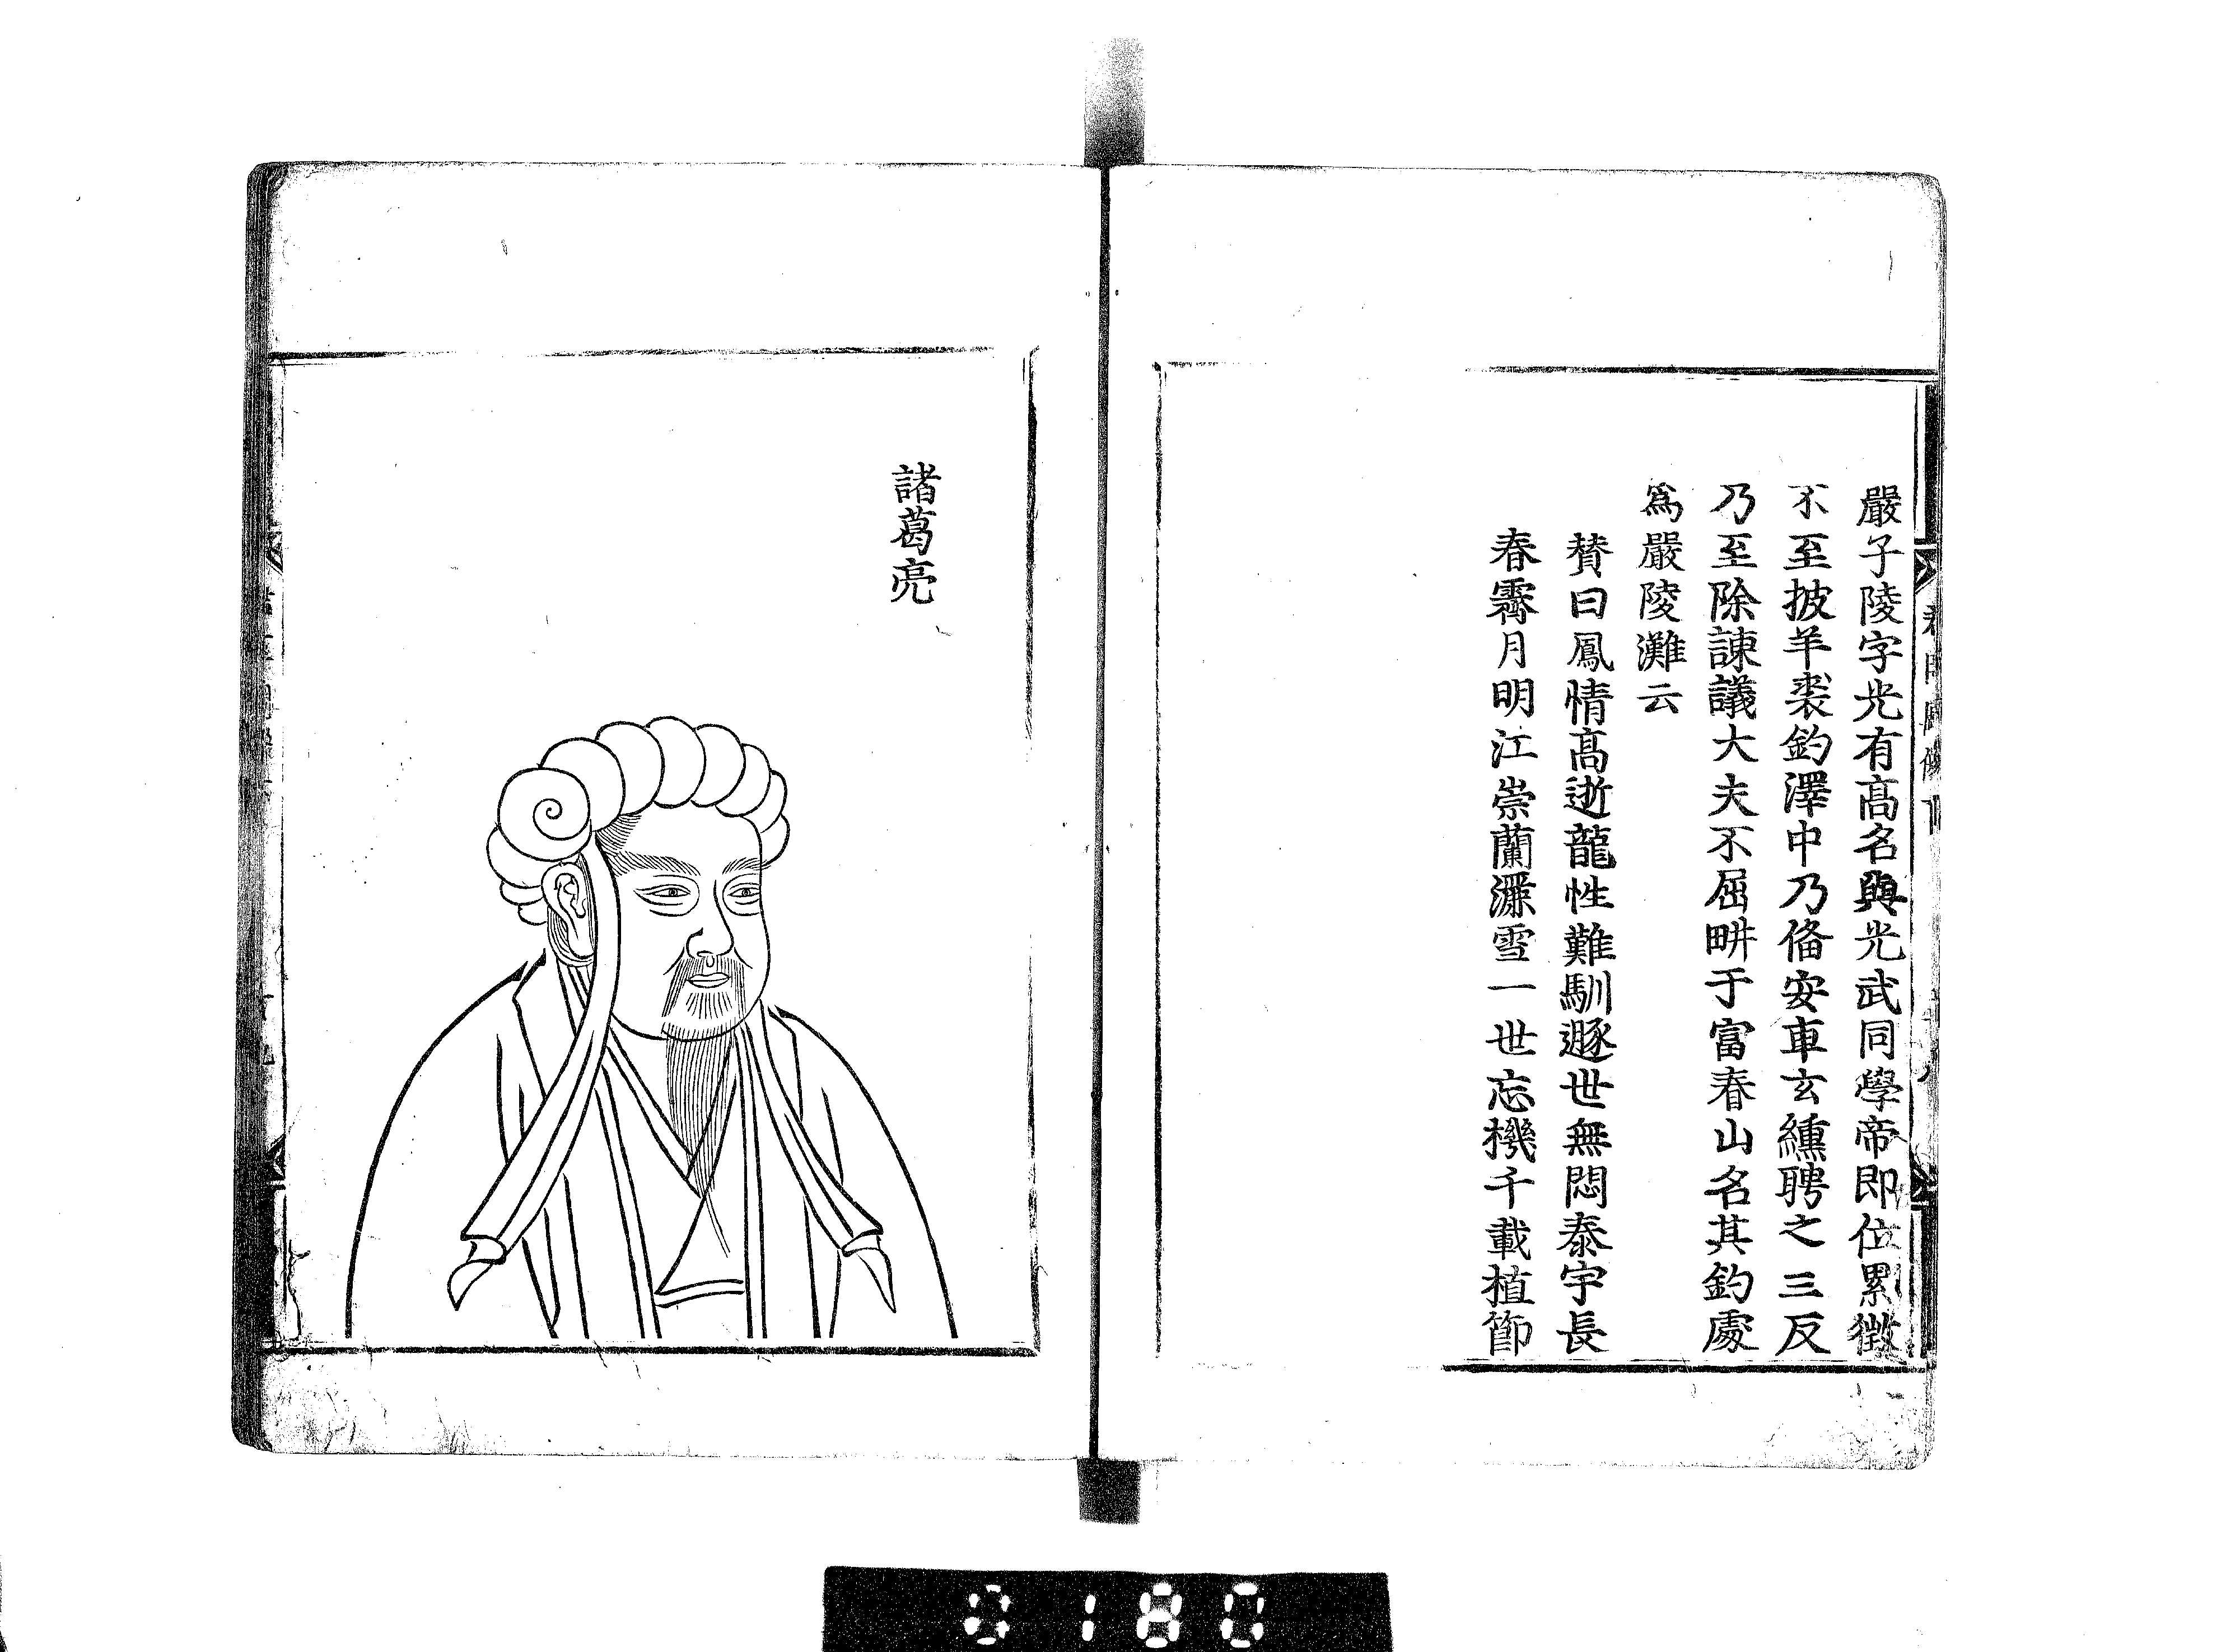 嚴子陵字光有髙名與光武同學帝即位累徵
不至披羊裘釣澤中乃俻安車玄纁聘之三反
乃至除諫議大夫不屈畊于富春山名其釣處
爲嚴陵灘云
賛曰鳳情髙逝龍性難馴遯世無悶泰宇長
春霽月明江崇蘭灈雪一世忘機千載植節
諸葛亮
0180